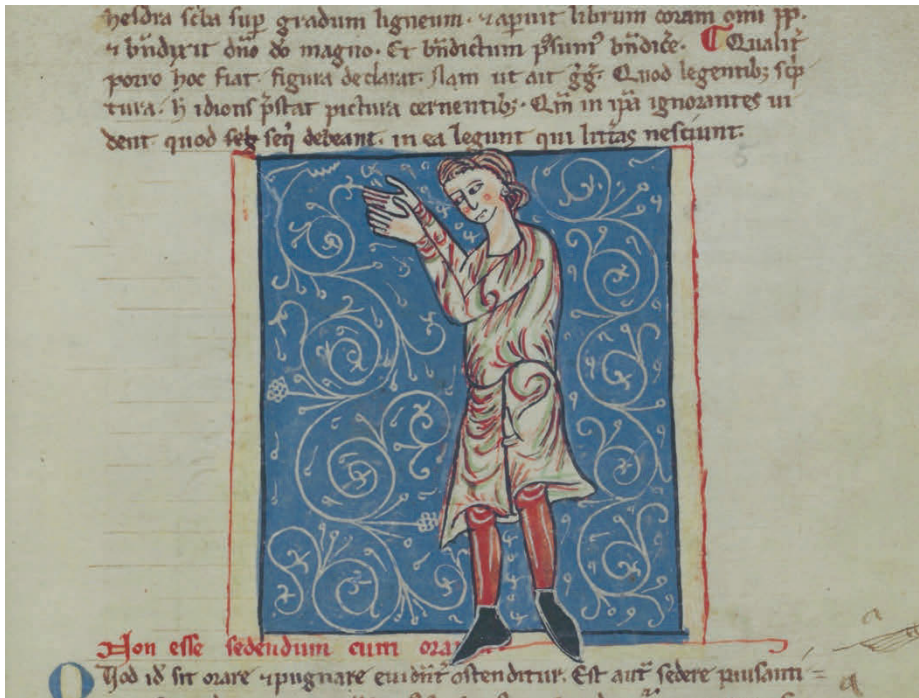 hesdra scba sup gradum ligneum. ⁊ apuit librum coram omi pp.
⁊ bñdixit dño do magno. Et bñdictum psum bñdice. Qualit̃
porro hoc fiat figura declarat. Nam ut ait gg̃. Quod legentib; scp
tura. h̃ idiotis p̃stat pictura cernentib;. Qm̃ in ip̃a ignorantes ui
dent quod seq̃ debeant. in ea legunt qui litt̃as nesciunt.
Non esse sedendum cum ora
Quod id̃ sit orare ⁊ pugnare euidñt̃ ostenditur. Est aut̃ sedere pausanti